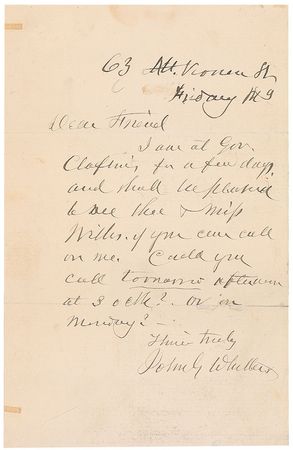 63 Mt. Vernon St
Friday M
Dear Friend
I am at Gov
Claflin's for a few days
and shall be pleased
to see thee & Miss
Wills. if you can call
on me. Could you
call tomorrow afternoon
at 3 oclk? or on
Monday? —
Thine truly
John G Whittier